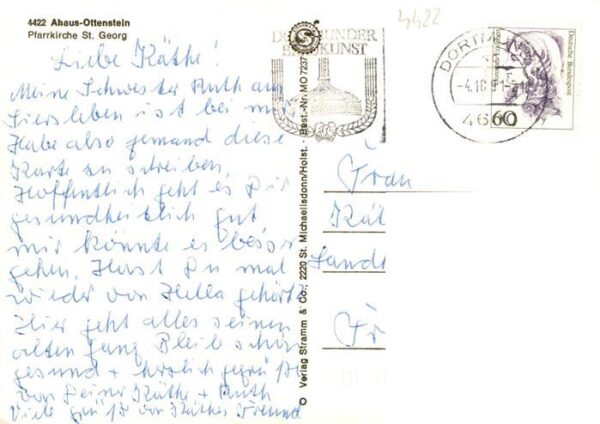 4422 Ahaus-Ottenstein
Pfarrkirche St. Georg
Liebe Käthe!
Meine Schwester Ruth aus
Eiersleben ist bei mir
Habe also gemand diese
Karte zu schreiben,
Hoffentlich geht es Dir
gesundheitlich gut
mir könnte es besser
gehen, Hast Du mal
wieder von Hella gehört?
Hier geht alles seinen
alten gang Bleib schön
gesund + herzlich gegrüßt
von Deiner Käthe + Ruth
Viele grüße von Käthes Freund
© Verlag Stramm & Co., 2220 St. Michaelisdonn/Holst. · Best.-Nr. MO 7237
4422
DORTMUNDER
BRAUKUNST
DORTMUND
-4.10.91-
4600
Deutsche Bundespost
60
Frau
Kät
Landt
Fr